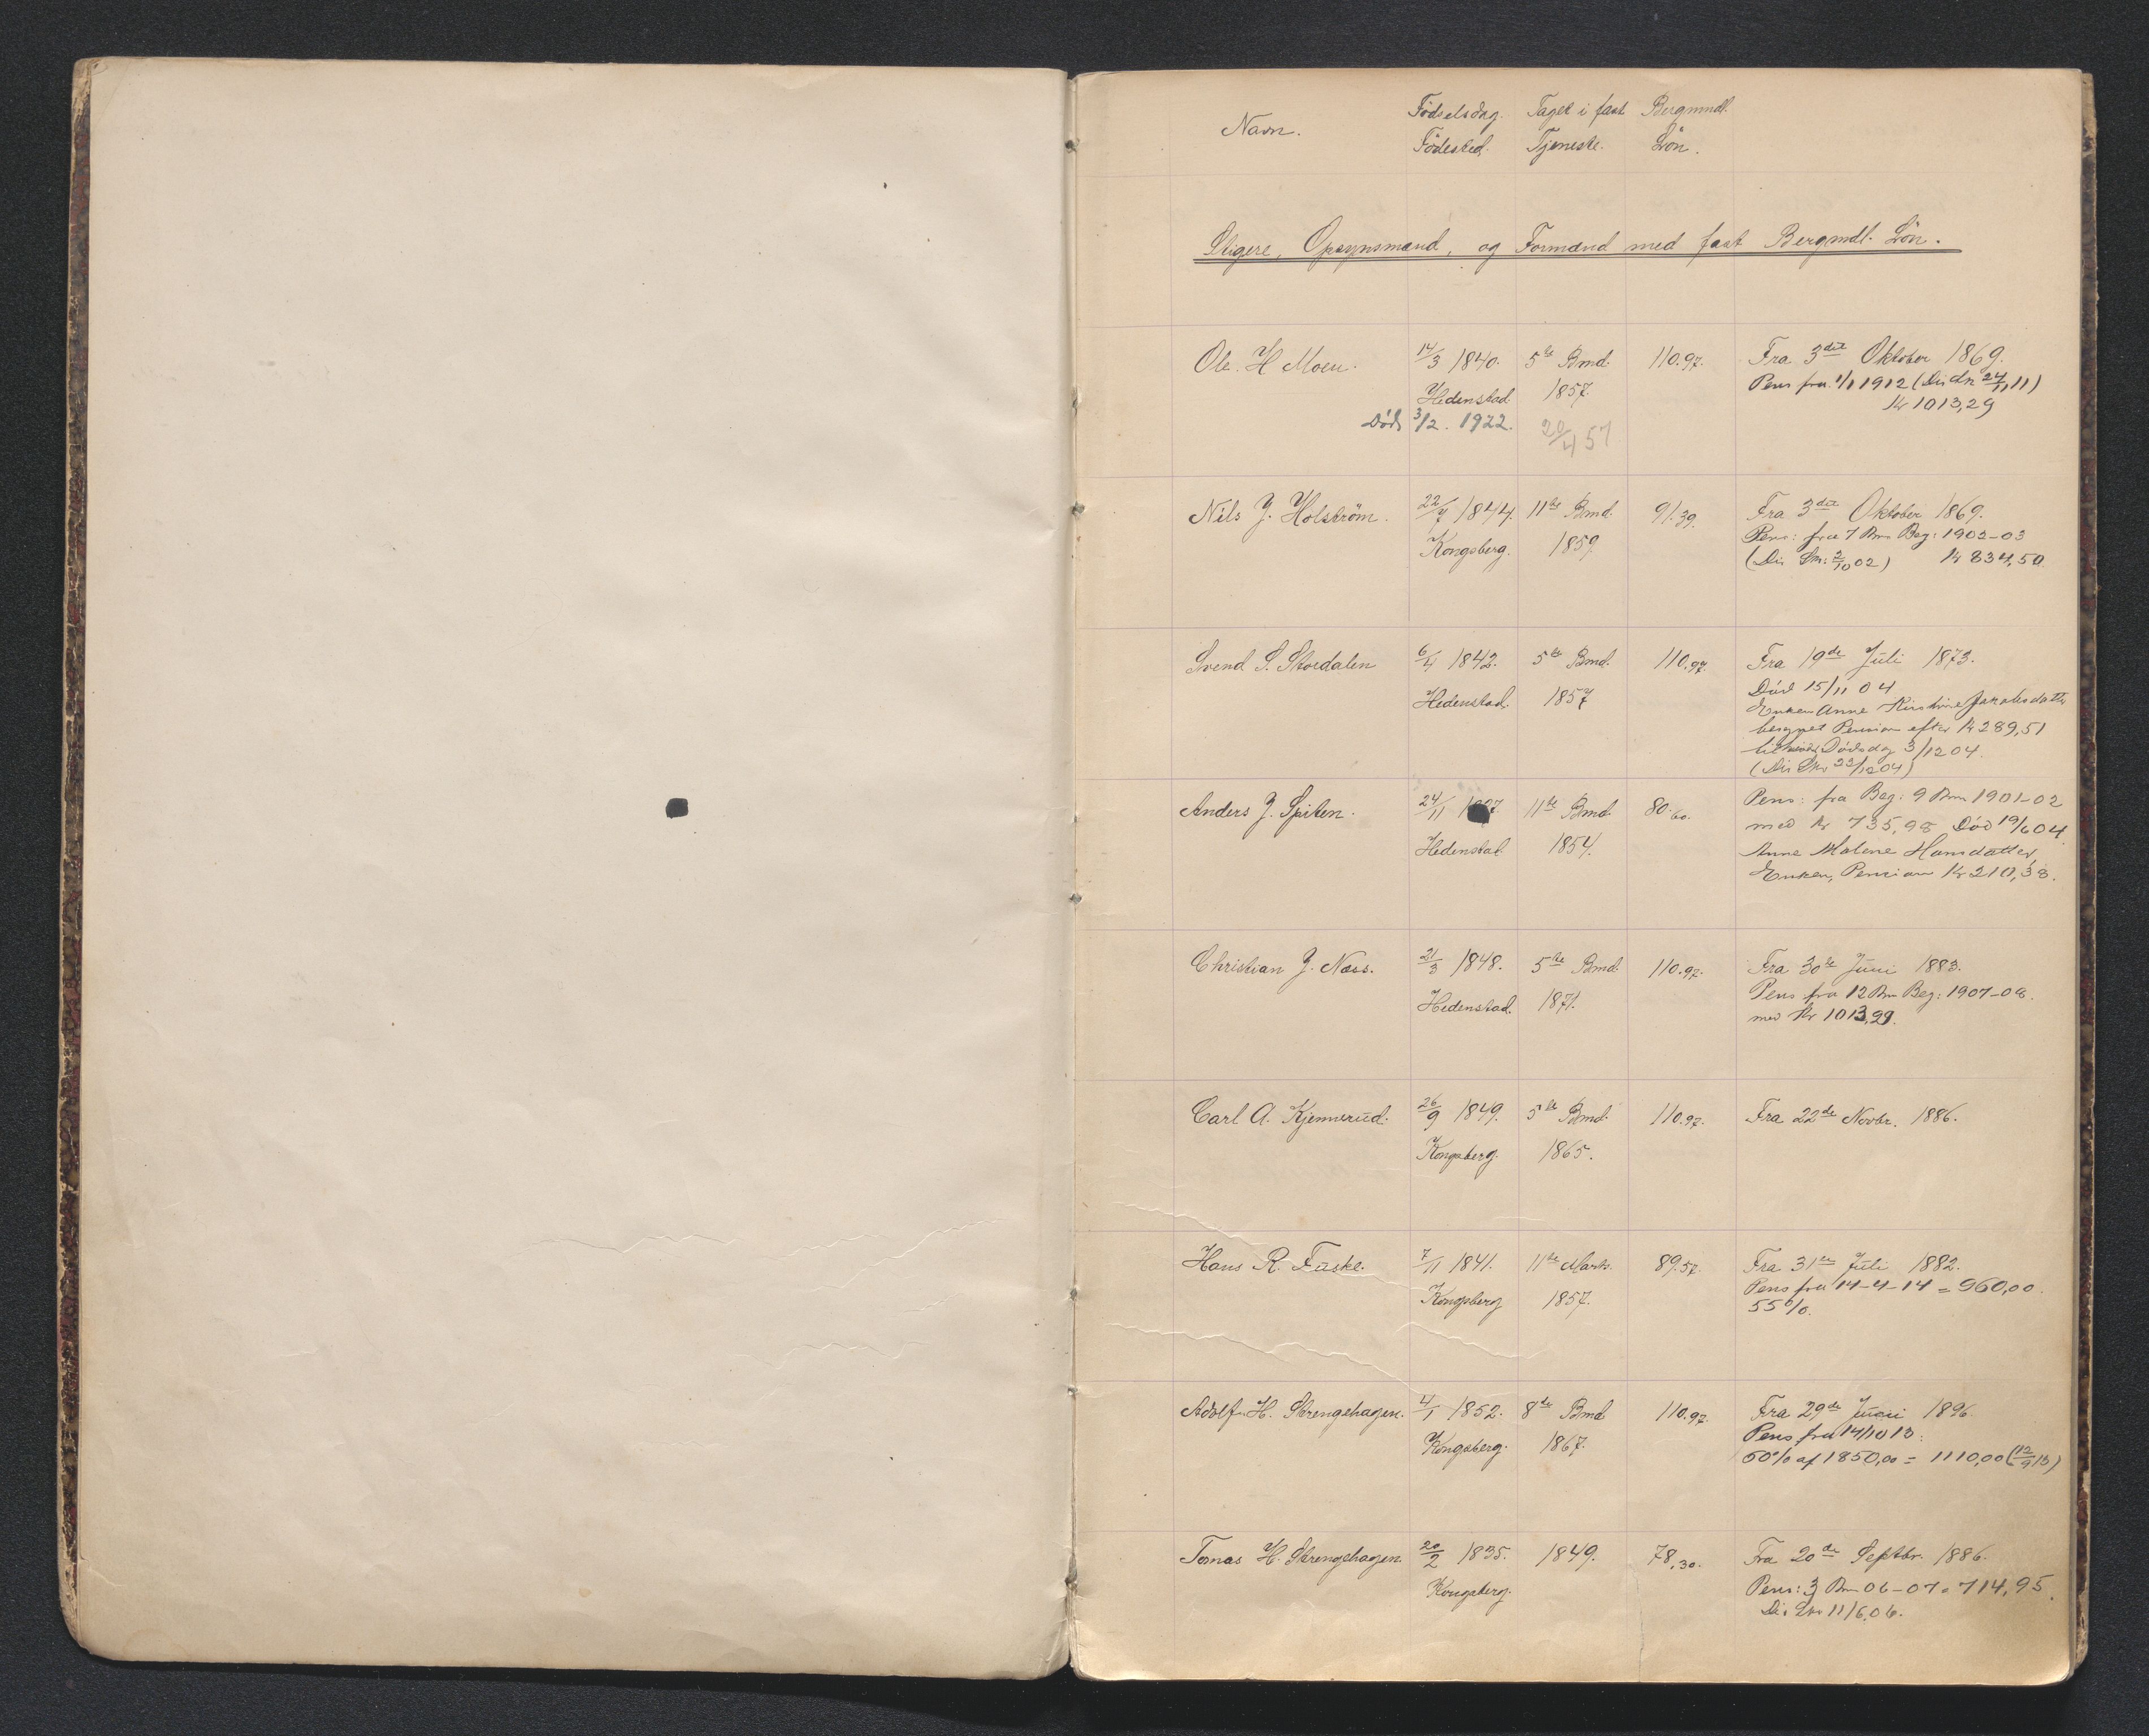 Navn. Födselsdag. Taget i fast Bergmndl.
Födested. Tjeneste. Lön.
Stigere, Opsynsmænd, og Formænd med fast Bergmdl. Lön.
Ole. H Moen. 14/3 1840. 5te Bmd. 110.97. Fra 3die Oktober 1869.
Hedenstad 1857. Pens fra 1/1 1912 (Dir Skr 24/11 11)
Kr 1013,29
Död 3/2. 1922. 20/4 57
Nils J. Holström. 22/7 1844. 11te Bmd. 91.39. Fra 3die Oktober 1869.
Kongsberg. 1859. Pens: fra 7 Bm Beg: 1902-03
(Dir Skr: 2/10 02) Kr 834,50
Svend S. Stordalen 6/4 1842. 5te Bmd. 110.97. Fra 19de Juli 1873.
Hedenstad. 1857 Död 15/11 04
Enken Anne Kirstine Jakobsdatter
Pension efter Kr 289,51
Dödsdag 3/12 04.
(Dir Skr 22/12 04)
Anders J. Spiten. 24/11 11te Bmd. 80.60. Pens: fra Beg: 9 Bm 1901-02
Hedenstad 1854. med Kr 735,98 Död 19/6 04.
Anne Malene Hansdatter,
Enken, Pension Kr 210,38.
Christian J. Næss. 21/3 1848. 5te Bmd. 110.97. Fra 30te Juni 1883.
Hedenstad. 1871. Pens fra 12 Bm Beg: 1907-08.
med Kr 1013,29.
Carl A. Kjennerud. 26/9 1849. 5te Bmd. 110.97. Fra 22de Novbr. 1886.
Kongsberg. 1865.
Hans R. Fuske. 7/11 1841. 11te Marts. 89.57. Fra 31te Juli 1882.
Kongsberg 1857. Pens fra 14-4-14 = 960,00.
55%.
Adolf. H. Strengehagen. 4/1 1852. 8de Bmd 110.97. Fra 29de Juni 1896.
Kongsberg. 1867. Pens fra 14/10 13:
60% af 1850,00 = 1110,00 (12/9 13)
Tomas H. Strengehagen. 20/2 1835. 1849. 78,30. Fra 20de Septbr. 1886.
Kongsberg. Pens: 3 Bm 06-07 = 714,95.
Dir Skr 11/6.06.